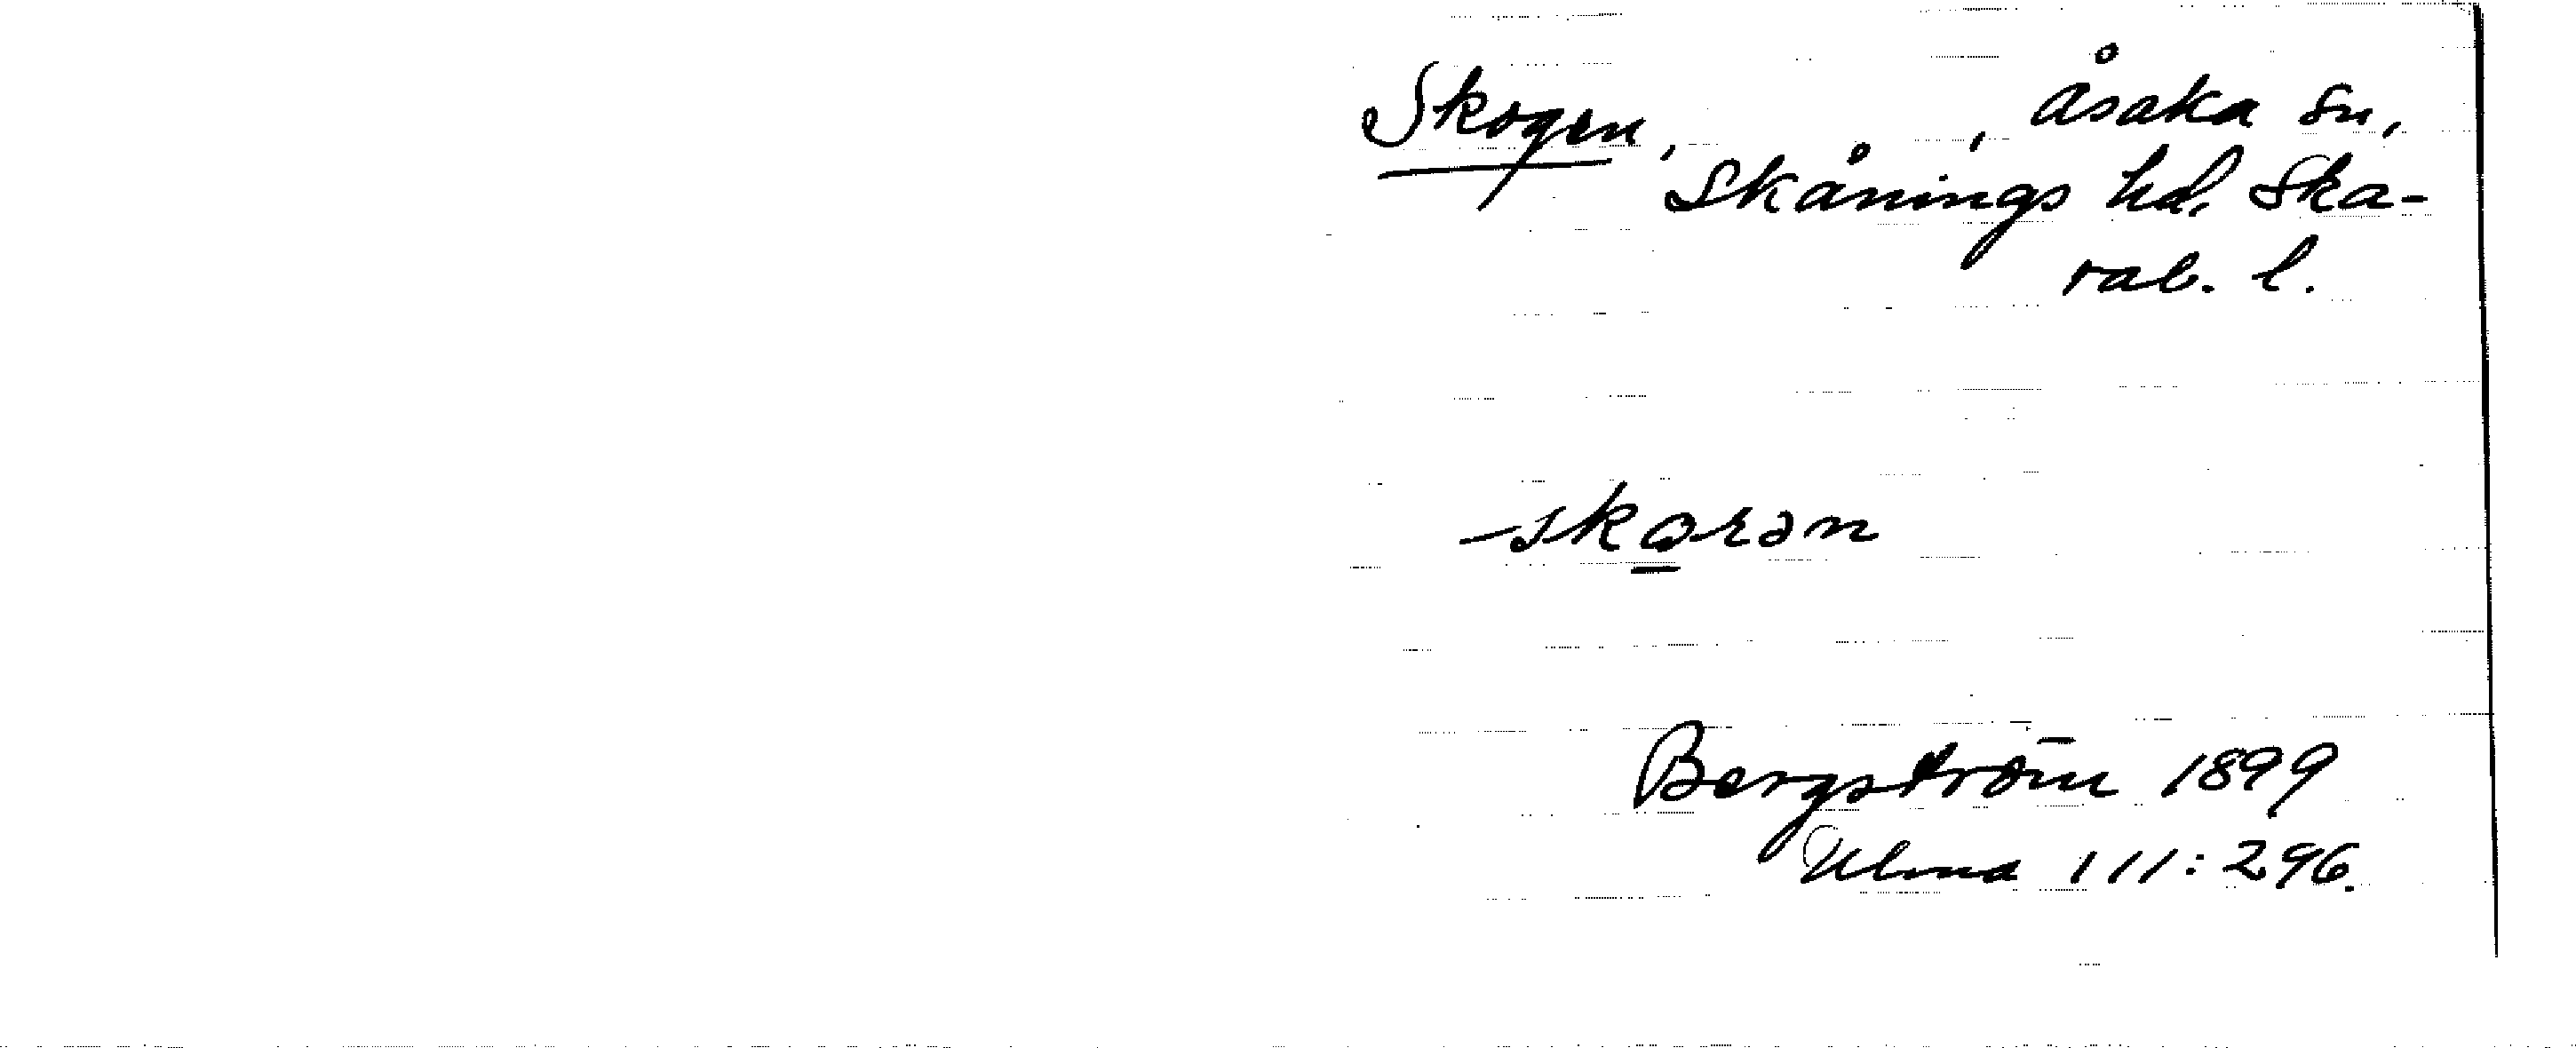 Skogen, , Åsaka sn,
Skånings hd, Ska-
rab. l.
-skɷrən
Bergström 1899
Ulma 111:296.